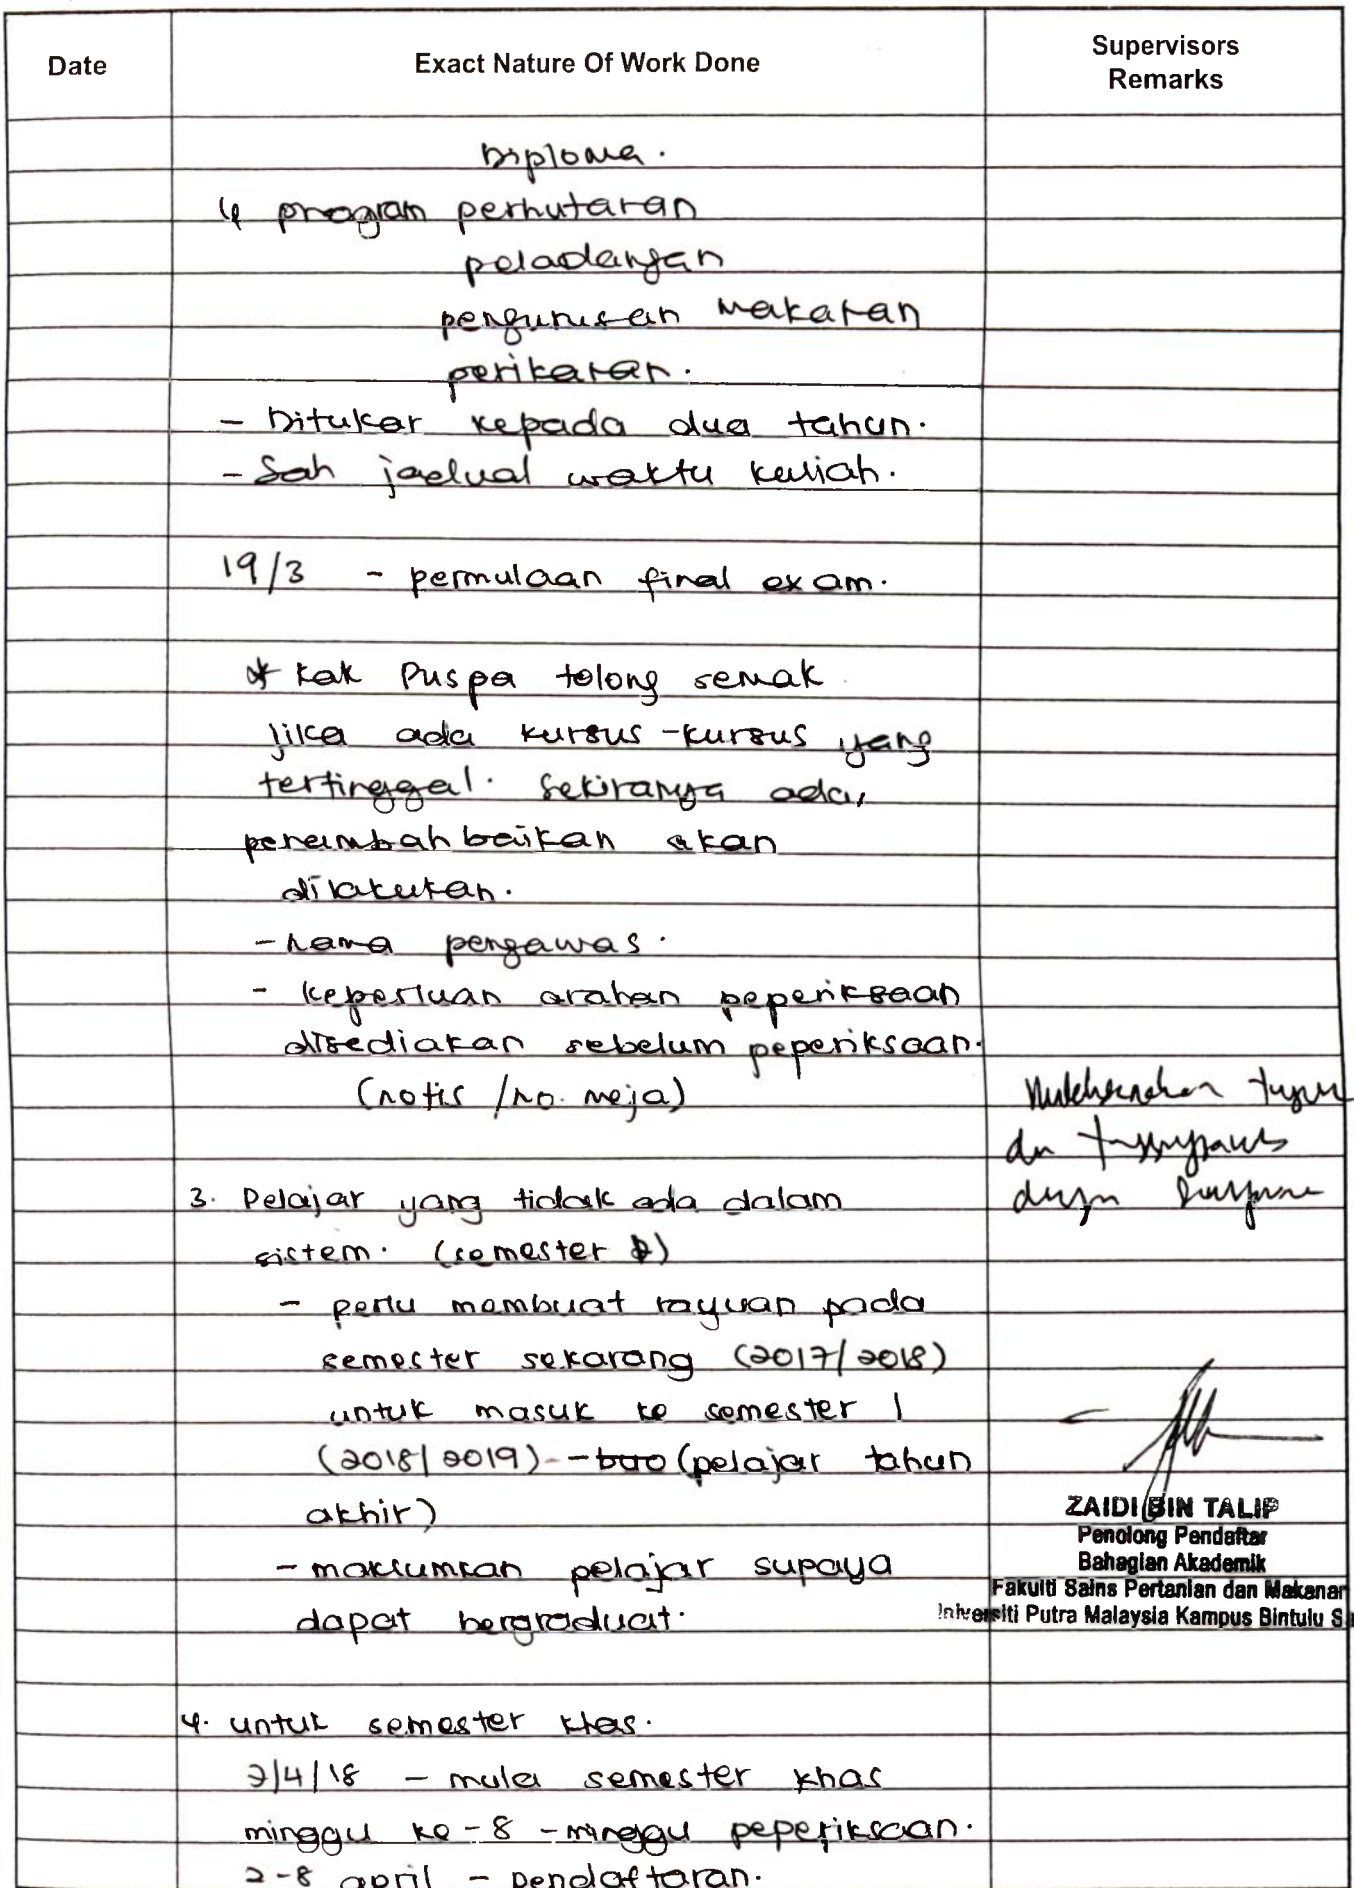 Date
Exact Nature Of Work Done
Supervisors
Remarks
Diploma.
↳ program perhutanan
peladangan
pengurusan makanan
perikanan.
- Ditukar kepada dua tahun.
- Sah jadual waktu kuliah.
19/3 - permulaan final exam.
* Kak Puspa tolong semak
jika ada kursus-kursus yang
tertinggal. Sekiranya ada,
penambahbaikan akan
dilakukan.
- Nama pengawas.
- Keperluan arahan peperiksaan
disediakan sebelum peperiksaan.
(notis /no. meja)
dan
3. Pelajar yang tidak ada dalam
sistem. (semester )
- perlu membuat rayuan pada
semester sekarang (2017/2018)
untuk masuk ke semester 1
(2018/2019) - (pelajar tahun
akhir)
- maklumkan pelajar supaya
dapat bergraduat.
ZAIDI BIN TALIP
Penolong Pendaftar
Bahagian Akademik
Fakulti Sains Pertanian dan Makanan
Universiti Putra Malaysia Kampus Bintulu S
4. untuk semester khas.
2/4/18 - mula semester khas
minggu ke-8 - minggu peperiksaan.
2-8 april - Pendaftaran.